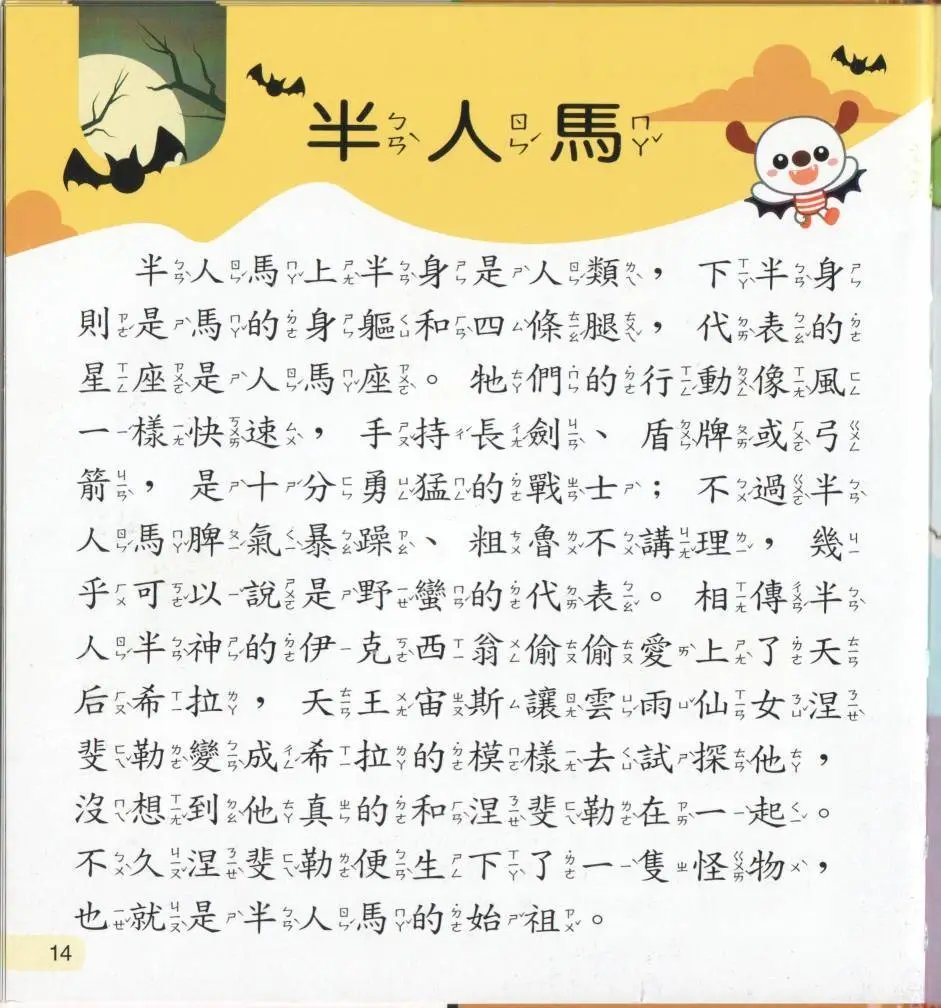 半人馬
半人馬上半身是人類，下半身
則是馬的身軀和四條腿，代表的
星座是人馬座。牠們的行動像風
一樣快速，手持長劍、盾牌或弓
箭，是十分勇猛的戰士；不過半
人馬脾氣暴躁、粗魯不講理，幾
乎可以說是野蠻的代表。相傳半
人半神的伊克西翁偷偷愛上了天
后希拉，天王宙斯讓雲雨仙女涅
斐勒變成希拉的模樣去試探他，
沒想到他真的和涅斐勒在一起。
不久涅斐勒便生下了一隻怪物，
也就是半人馬的始祖。
14